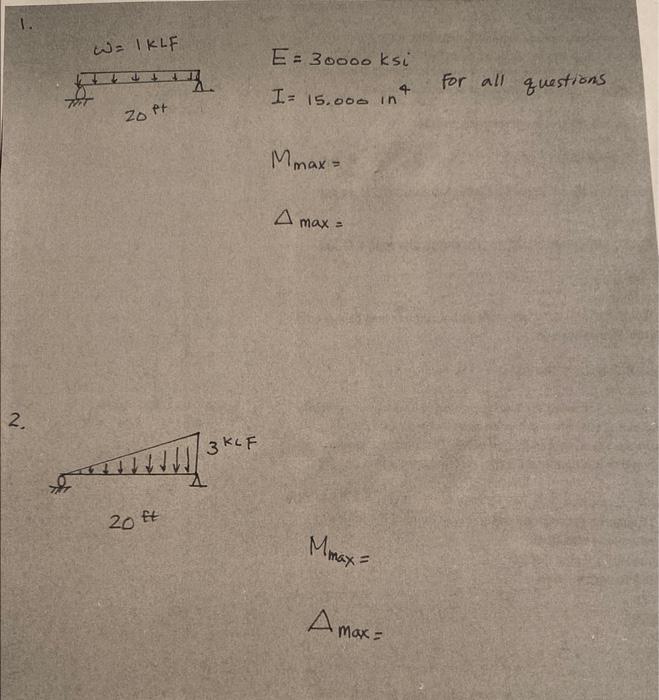 1.
W= 1 KLF
20 ft
E = 30000 ksi
I = 15.000 in⁴
For all questions
Mmax =
Δ max =
2.
3 KLF
20 ft
Mmax =
Δ max =